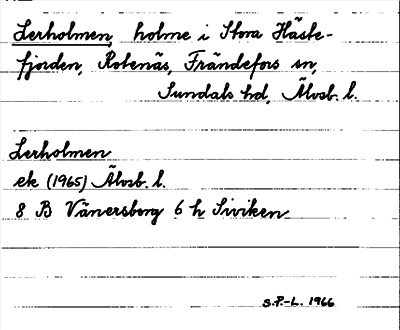 Lerholmen, holme i Stora Häste-
fjorden, Rotenäs, Frändefors sn,
Sundals hd, Älvsb. l.
Lerholmen
ek (1965) Älvsb. l.
8 B Vänersborg 6 h Siviken
S.P.-L. 1966